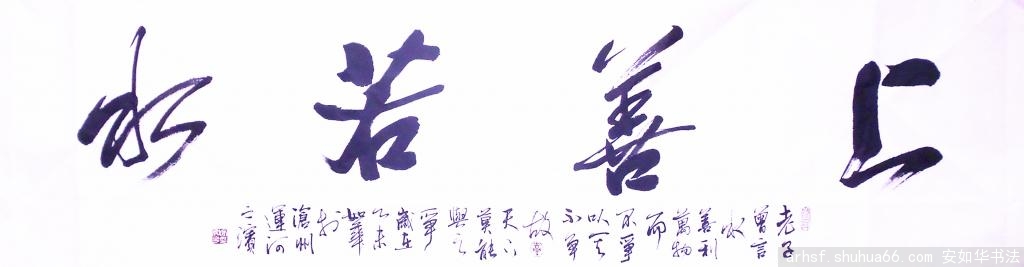 上善若水
老子
曾言
水
善利
萬物
而
不爭
以其
不爭
故
天下
莫能
與之
爭
歲在
乙未
如華
於
滄州
運河
之濱
arhsf.shuhua66.com 安如华书法